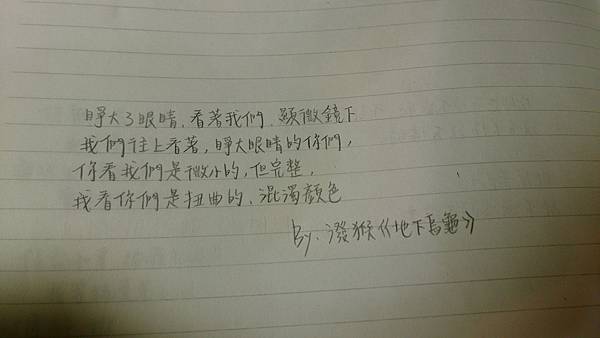 睜大了眼睛、看著我們、顯微鏡下
我們往上看著,睜大眼睛的你們,
你看我們是微小的,但完整,
我看你們是扭曲的、混濁顏色
By. 潑猴《地下烏龜》